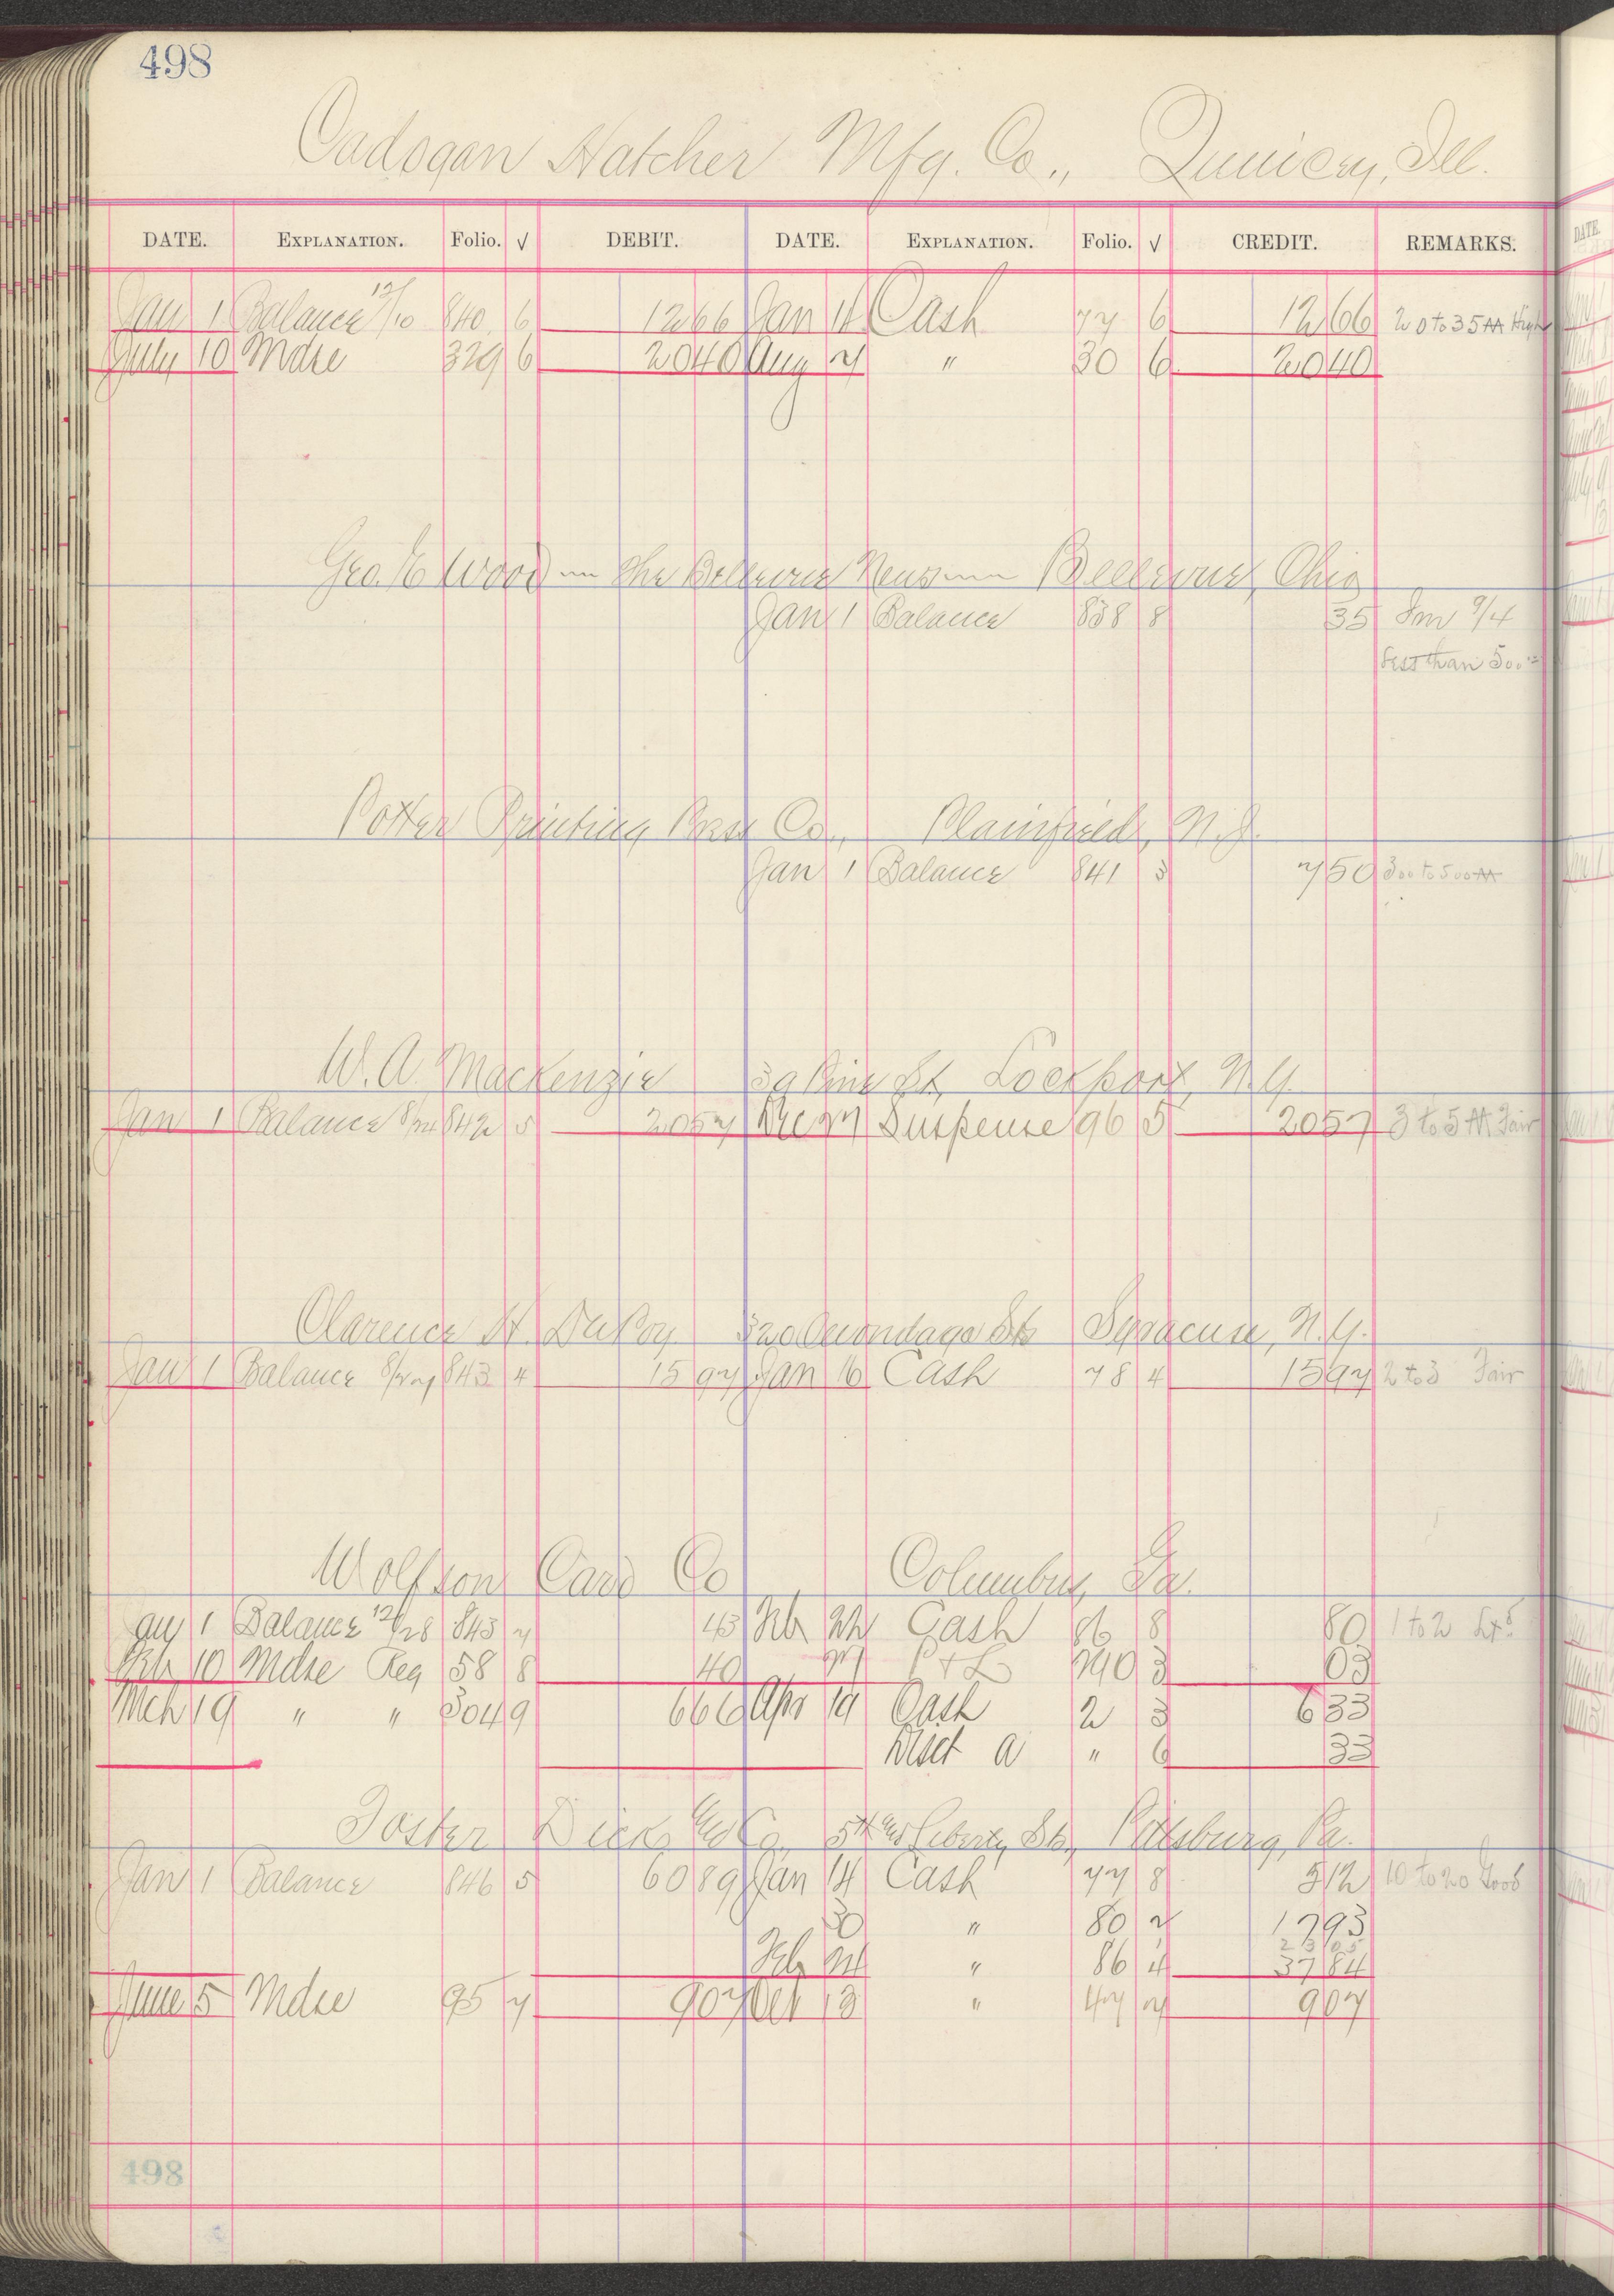 498
Cadogan Hatcher Mfg. Co., Quincy, Ill.
DATE. EXPLANATION. Folio. √ DEBIT. DATE. EXPLANATION. Folio. √ CREDIT. REMARKS.
Jan 1 Balance 12/10 840 6 12 66 Jan 14 Cash 77 6 12 66 20 to 35 M High
July 10 Mdse 329 6 20 40 Aug 7 " 30 6 20 40
Geo. E Wood The Bellevue News Bellevue, Ohio
Jan 1 Balance 838 8 35 9/4
Less than 500
Potter Printing Press Co., Plainfield, N.J.
Jan 1 Balance 841 3 7 50 300 to 500 M
W. A. Mackenzie 39 Pine St., Lockport, N.Y.
Jan 1 Balance 842 5 20 57 Dec 27 Suspense 96 5 20 57 3 to 5 M Fair
Clarence H. DuPoy 320 Onondaga St. Syracuse, N.Y.
Jan 1 Balance 8/27 843 4 15 97 Jan 16 Cash 78 4 15 97 2 to 3 Fair
Wolfson Card Co Columbus, Ga.
Jan 1 Balance 12/28 843 7 43 Feb 22 Cash 86 8 80 1 to 2
Feb 10 Mdse Reg 58 8 40 27 P & L 290 3 03
Mch 19 " " 304 9 6 66 Apr 19 Cash 2 3 6 33
Disct a " 6 33
Foster Dick & Co., 5th and Liberty Sts., Pittsburg, Pa.
Jan 1 Balance 846 5 60 89 Jan 14 Cash 77 8 5 12 10 to 20 Good
30 " 80 2 17 93
23 05
Feb 21 " 86 4 37 84
June 5 Mdse 95 7 9 07 Oct 13 " 47 7 9 07
498